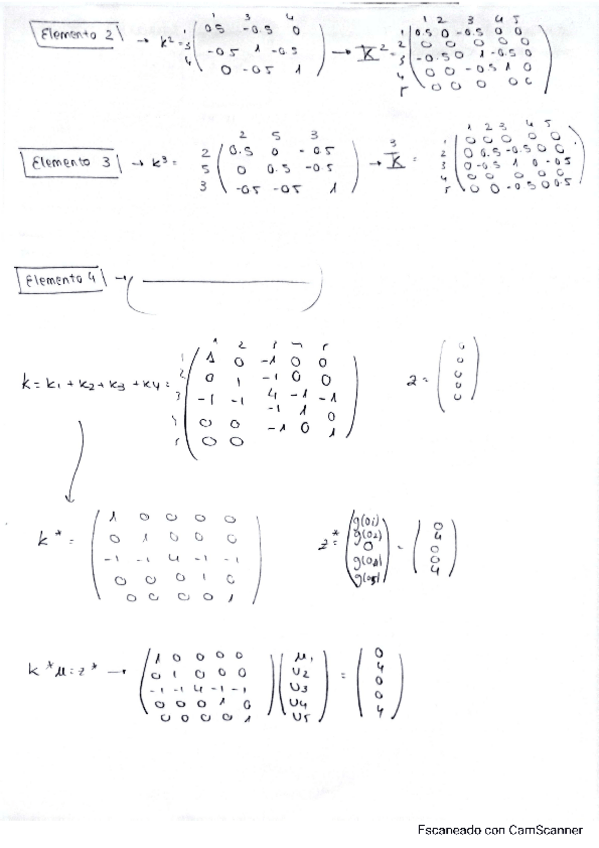 1 3 4
Elemento 2 → k² = 1 3 4 ( 0.5 -0.5 0
-0.5 1 -0.5
0 -0.5 1 ) → K² = 1 2 3 4 5
1 2 3 4 5 ( 0.5 0 -0.5 0 0
0 0 0 0 0
-0.5 0 1 -0.5 0
0 0 -0.5 1 0
0 0 0 0 0 )
2 5 3
Elemento 3 → k³ = 2 5 3 ( 0.5 0 -0.5
0 0.5 -0.5
-0.5 -0.5 1 ) → K³ = 1 2 3 4 5
1 2 3 4 5 ( 0 0 0 0 0
0 0.5 -0.5 0 0
0 -0.5 1 0 -0.5
0 0 0 0 0
0 0 -0.5 0 0.5 )
Elemento 4 → ( — )
1 2 3 4 5
k = k1 + k2 + k3 + k4 = 1 2 3 4 5 ( 1 0 -1 0 0
0 1 -1 0 0
-1 -1 4 -1 -1
0 0 -1 1 0
0 0 -1 0 1 ) 2 = ( 0
0
0
0
0 )
k* = ( 1 0 0 0 0
0 1 0 0 0
-1 -1 4 -1 -1
0 0 0 1 0
0 0 0 0 1 ) z* = ( g(01)
g(02)
0
g(04)
g(05) ) = ( 0
4
0
0
4 )
k*μ = z* → ( 1 0 0 0 0
0 1 0 0 0
-1 -1 4 -1 -1
0 0 0 1 0
0 0 0 0 1 ) ( μ1
U2
U3
U4
U5 ) = ( 0
4
0
0
4 )
Escaneado con CamScanner